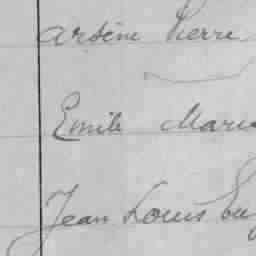 Arsène Pierre
Emile Marius
Jean Louis